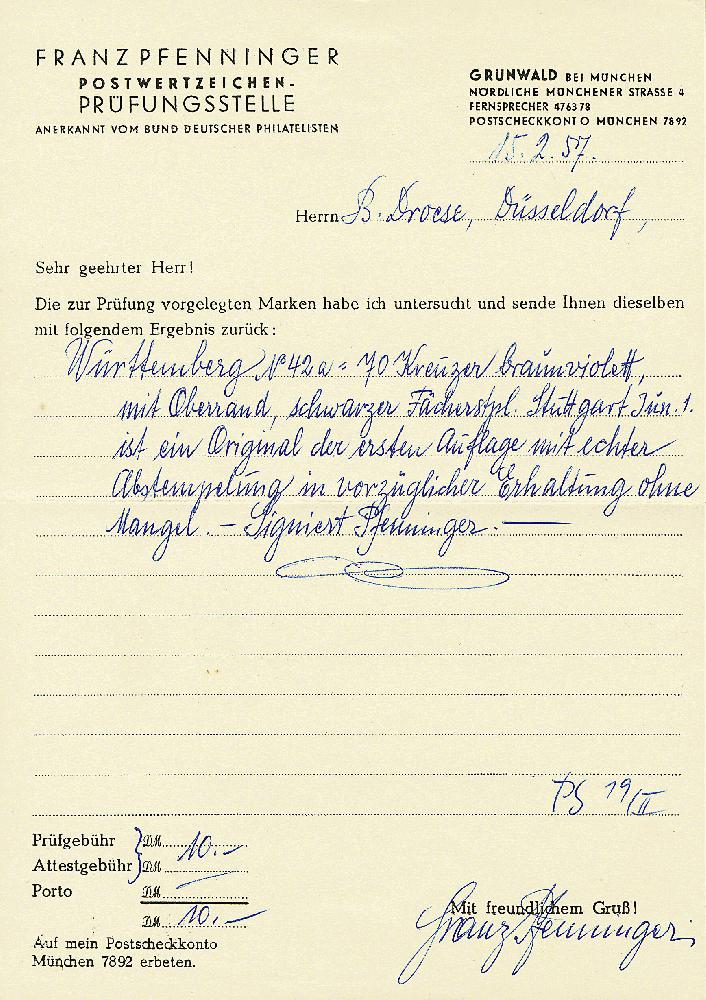 FRANZ PFENNINGER
POSTWERTZEICHEN-
PRÜFUNGSSTELLE
ANERKANNT VOM BUND DEUTSCHER PHILATELISTEN
GRÜNWALD BEI MÜNCHEN
NÖRDLICHE MÜNCHENER STRASSE 4
FERNSPRECHER 476378
POSTSCHECKKONTO MÜNCHEN 7892
15.2.57.
Herrn B. Droese, Düsseldorf,
Sehr geehrter Herr!
Die zur Prüfung vorgelegten Marken habe ich untersucht und sende Ihnen dieselben
mit folgendem Ergebnis zurück:
Württemberg No 42a = 70 Kreuzer braunviolett,
mit Oberrand, schwarzer Fächerstpl. Stuttgart Jun. 1.
ist ein Original der ersten Auflage mit echter
Abstempelung in vorzüglicher Erhaltung ohne
Mängel. – Signiert Pfenninger. —
PS 19/II
Prüfgebühr DM 10.-
Attestgebühr DM
Porto DM
DM 10.-
Auf mein Postscheckkonto
München 7892 erbeten.
Mit freundlichem Gruß!
Franz Pfenninger